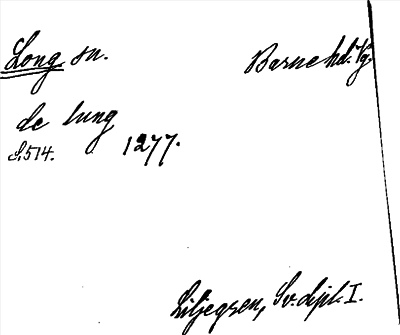 Long sn. Barne hd. Vg.
de lung
S. 514. 1277.
Liljegren, Sv. dipl. I.